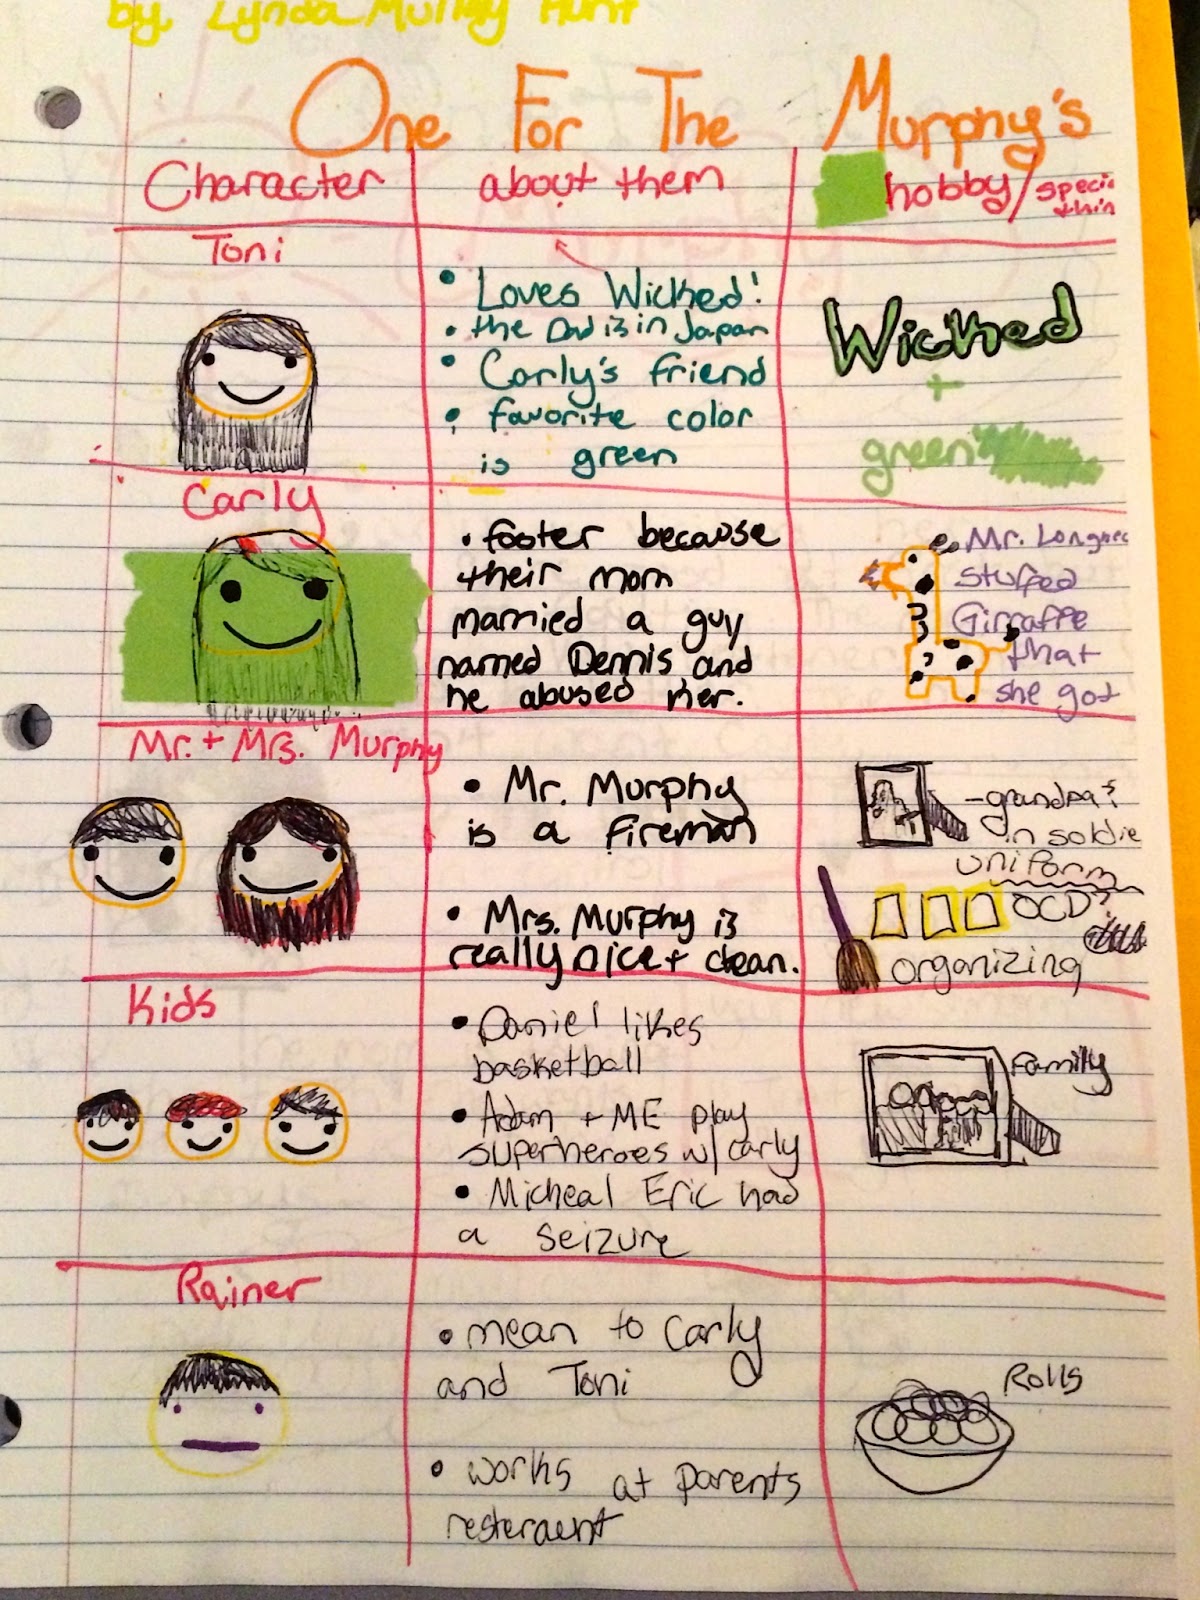 by Lynda Mullaly Hunt
One For The Murphy's
Character
about them
hobby/ specia
thin
Toni
• Loves Wicked!
• the Dad is in Japan
• Carly's friend
• favorite color
is green
Wicked
+
green
Carly
• foster because
their mom
married a guy
named Dennis and
he abused her.
Mr. Longnec
stuffed
Giraffe
that
she got
Mr. + Mrs. Murphy
• Mr. Murphy
is a fireman
• Mrs. Murphy is
really nice + clean.
-grandpa
in soldie
uniform
OCD?
organizing
Kids
• Daniel likes
basketball
• Adam + ME play
superheroes w/ carly
• Micheal Eric had
a seizure
Family
Rainer
• mean to Carly
and Toni
• works at parents
resteraent
Rolls